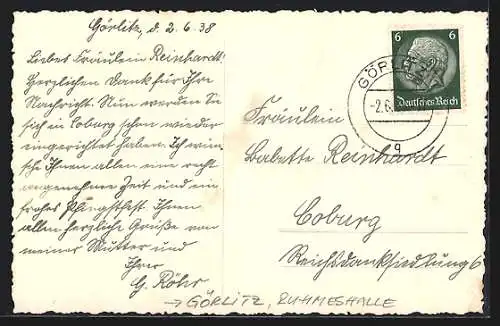 Görlitz, d. 2. 6. 38
Liebes Fräulein Reinhardt!
Herzlichen Dank für Ihre
Nachricht. Nun werden Sie
sich in Coburg schon wieder
eingerichtet haben. Ich wün-
sche Ihnen allen eine recht
angenehme Zeit und ein
frohes Pfingstfest. Ihnen
allen herzliche Grüße von
meiner Mutter und
Ihrer
G. Röhr
6 6
Deutsches Reich
GÖRLITZ
-2.6.
q
Fräulein
Babette Reinhardt
Coburg
Reichsdanksiedlung 6
→ GÖRLITZ, RUHMESHALLE